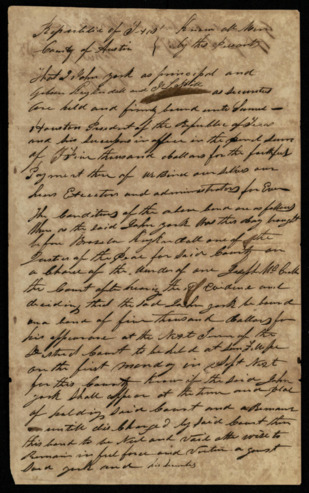 Republic of Texas Know all Men
County of Austin by these Presents
That I John York as principal and
as securities
are held and firmly bound unto Samuel
Houston President of the Republic of Texas
and his Successors in office in the penal sum
of Five thousand dollars for the faithful
Payment there of we Bind our selves our
heirs Executors and administrators for Ever
The Conditions of the above bond are as follows
When as the said John York Was this day brought
before one of the
Justice of the Peace for Said County on
a Charge of the Murder of one Joseph McC
the Court after hearing the Evidence and
deciding that the Said John York be bound
in a bond of five thousand dollars for
his appearance at the Next Term of the
District Court to be held at
on the first monday in Sept Next
for this County Know if the Said John
York shall appear at the term and place
of holding Said Court and Remain
until discharged by Said Court then
this bond to be Null and Void other wise to
Remain in full force and Virtue against
Said York and